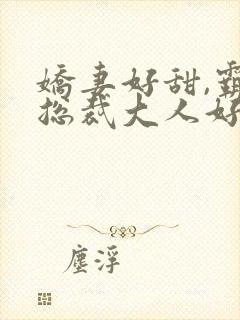 嬌妻好甜,霸
總裁大人好
塵浮